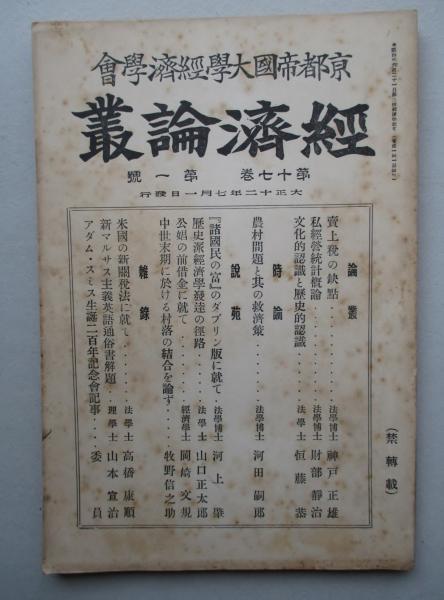 京都帝國大學經濟學會
經濟論叢
第十七卷 第一號
大正十二年七月一日發行
論叢
賣上稅の缺點 法學博士 神戶正雄
私經營統計概論 法學博士 財部靜治
文化的認識と歷史的認識 法學士 恒藤恭
時論
農村問題と其の救濟策 法學博士 河田嗣郎
說苑
『諸國民の富』のダブリン版に就て 法學博士 河上肇
歷史派經濟學發達の徑路 法學士 山口正太郎
公娼の前借金に就て 經濟學士 岡崎文規
中世末期に於ける村落の結合を論ず 牧野信之助
雜錄
米國の新關稅法に就て 法學士 高橋康順
新マルサス主義英語通俗書解題 理學士 山本宣治
アダム・スミス生誕二百年記念會記事 委員
(禁轉載)